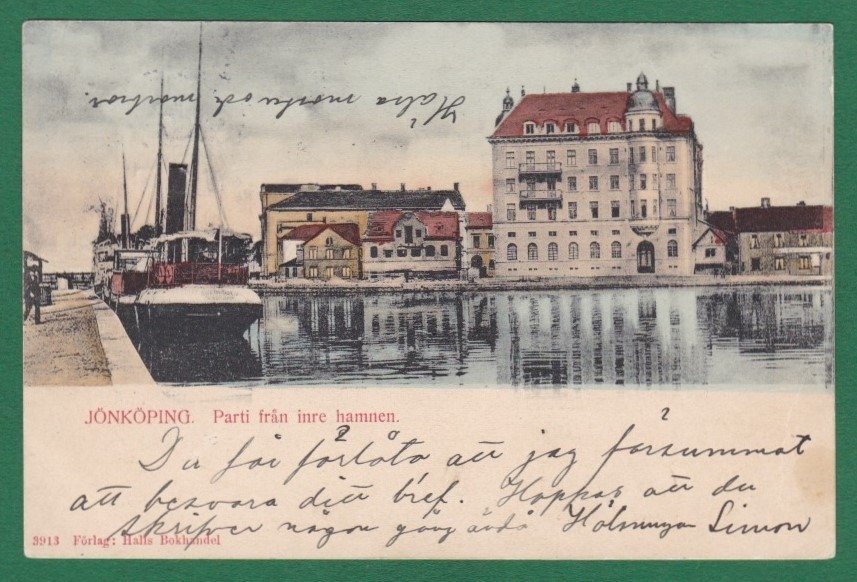 Hälsa morbr och mostrar.
JÖNKÖPING. Parti från inre hamnen.
Du får förlåta att jag försummat
att besvara ditt bref. Hoppas att du
skrifver någon gång ändå Hälsningar Simon
3913 Förlag: Halls Bokhandel